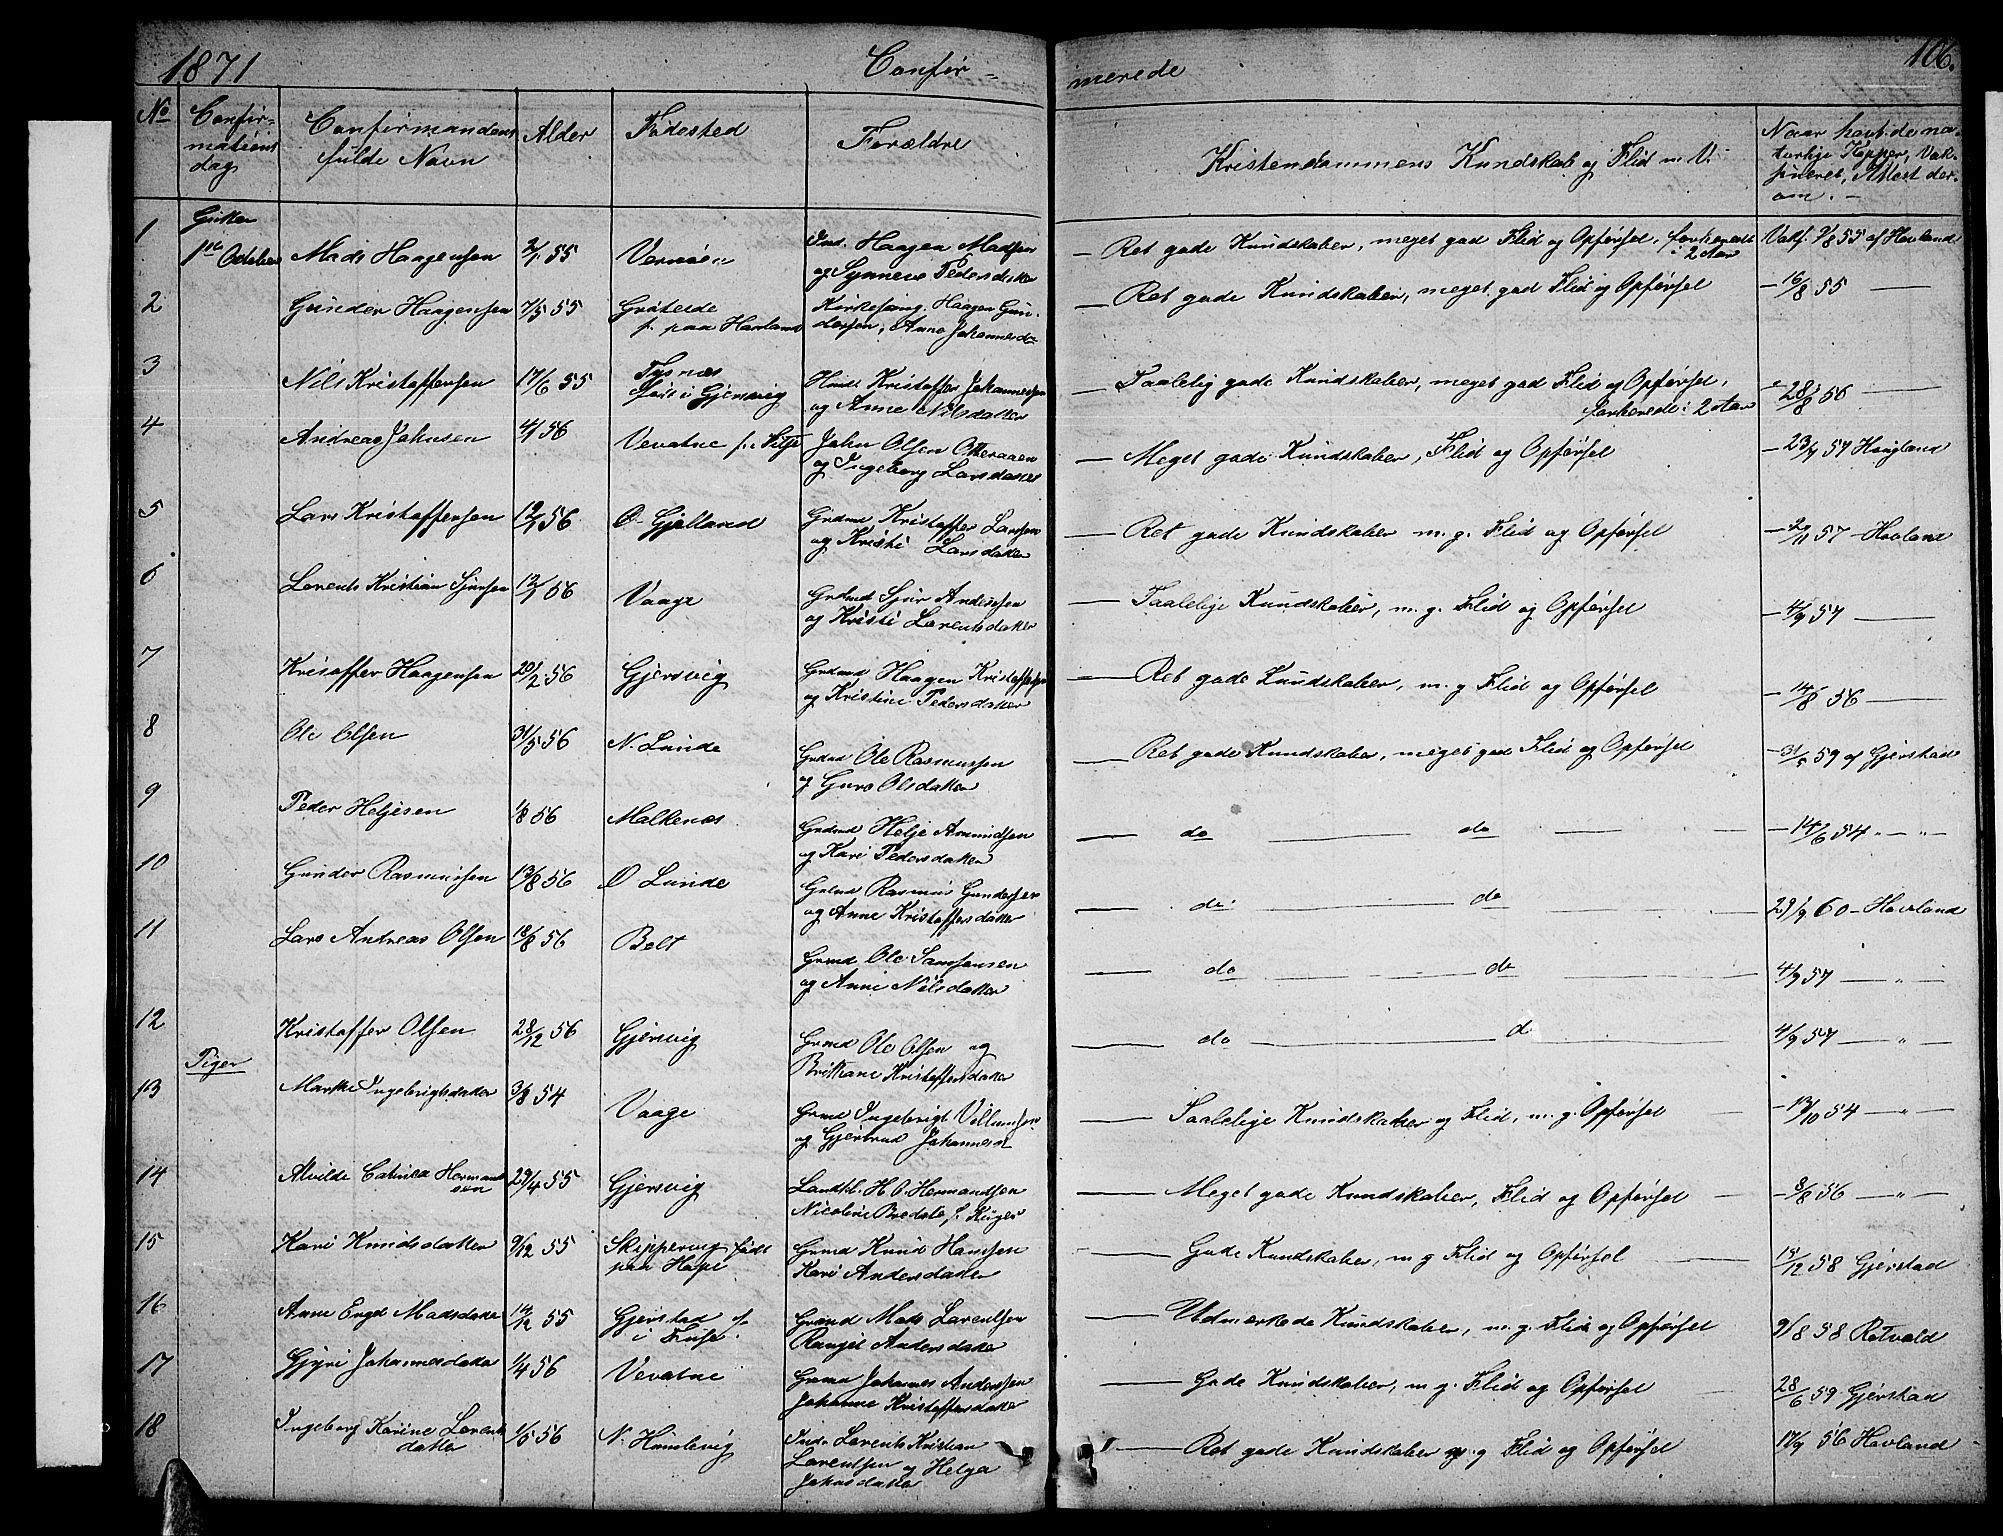 1871 Confir- merede 106.
No Confir-mations dag Confirmandens fulde Navn Alder Fødested Forældre Kristendommens Kundskab og Flid m. V. Naar havt de na-turlige Kopper, Vak-sineret, Attest der-om.
Gutter
1 1ste October Mads Haagensen 2/1 55 Vernøen Ind. Haagen Madsen og Synneve Pedersdatter Ret gode Kundskaber, meget god Flid og Opførsel, forberedt i 2 Aar Vaks. 9/8 55 af Hovland
2 Gunder Haagensen 7/5 55 f. paa Havland Kirkesang. Haagen Gun-dersen, Anna Johannesd. Ret gode Kundskaber, meget god Flid og Opførsel 16/8 55
3 Nils Kristoffersen 17/6 55 Tysnæs født i Gjersvig Kristoffer Johannessen og Anne Nilsdatter Taalelig gode Kundskaber, meget god Flid og Opførsel, forberedt i 2 Aar 28/8 56
4 Andreas Johnsen 4/1 56 Vevatne John Olsen Otteraaen og Ingeborg Larsdatter Meget gode Kundskaber, Flid og Opførsel 23/4 57 Hovland
5 Lars Kristoffersen 12/1 56 O. Gjelland Grdmd Kristoffer Larssen og Kristi Larsdatter Ret gode Kundskaber m. g. Flid og Opførsel 2/11 57 Hovland
6 Lorents Kristian Sjursen 12/1 56 Vaage Grdmd Sjur Anderssen og Kristi Lorentsdatter Taalelige Kundskaber, m. g. Flid og Opførsel 4/9 57
7 Kristoffer Haagensen 20/2 56 Gjersvig Grdmd Haagen Kristoffersen og Kristine Pedersdatter Ret gode Kundskaber, m. g Flid og Opførsel 14/8 56
8 Ole Olsen 31/5 56 N. Lunde Grdmd Ole Rasmussen og Guro Olsdatter Ret gode Kundskaber, meget god Flid og Opførsel 31/5 59 af Gjerstad
9 Peder Heljesen 1/8 56 Malkenæs Grdmd Helje Amundsen og Kari Pedersdatter do do 14/6 54 " "
10 Gunder Rasmussen 13/8 56 O Lunde Grdmd Rasmus Gundersen og Anne Kristoffersdatter do. do 29/9 60 Hovland
11 Lars Andreas Olsen 18/8 56 Belt Grmd Ole Samsonsen og Anne Nilsdatter do do 4/9 57 "
12 Kristoffer Olsen 28/12 56 Gjersvig Grmd Ole Olsen og Brithane Kristoffersdatter do d 4/9 57 "
Piger
13 Marthe Ingebrigtsdatter 3/8 54 Vaage Grmd Ingebrigt Villumsen og Gjertrud Johannesd Taalelige Kundskaber og Flid, m. g. Opførsel 13/10 54 "
14 Alvilde Catrine Hermand sen 29/4 55 Gjersvig Landhl. H. O. Hermandsen Nicoline Bredals f. Krüger Meget gode Kundskaber, Flid og Opførsel 8/8 56 "
15 Kari Knudsdatter 9/12 55 Skippervig født paa Hope Grmd Knud Hanssen Kari Andersdatter Gode Kundskaber, m g Flid og Opførsel 15/12 58 Gjerstad
16 Anne Engel Madsdatter 14/12 55 Gjerstad f. i Fuse. Grmd Mads Larentsen Rangel Andersdatter Udmerkede Kundskaber, m. g. Flid og Opførsel 9/8 58 Rotvold
17 Gjyri Johannesdatter 1/4 56 Vevatne Grmd Johannes Anderssen Johanne Kristoffersdatter Gode Kundskaber, m g. Flid og Opførsel 28/6 59 Gjerstad
18 Ingeborg Karine Lorents datter 1/5 56 N. Humlevig Ind. Lorents Kristian Lorentsen og Helga Johnsdatter Ret gode Kundskaber m. g Flid og Opførsel 17/9 56 Hovland